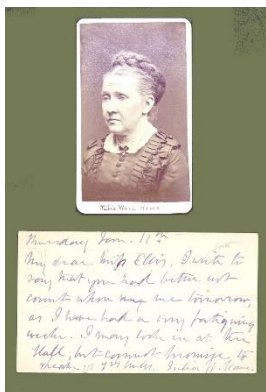 Julia Ward Howe
Thursday Jan. 11th
My dear Miss Ellis, I write to
say that you had better not
count upon me tomorrow,
as I have had a very fatiguing
week. I may look in at the
Hall, but cannot promise to
speak. Julia W. Howe.